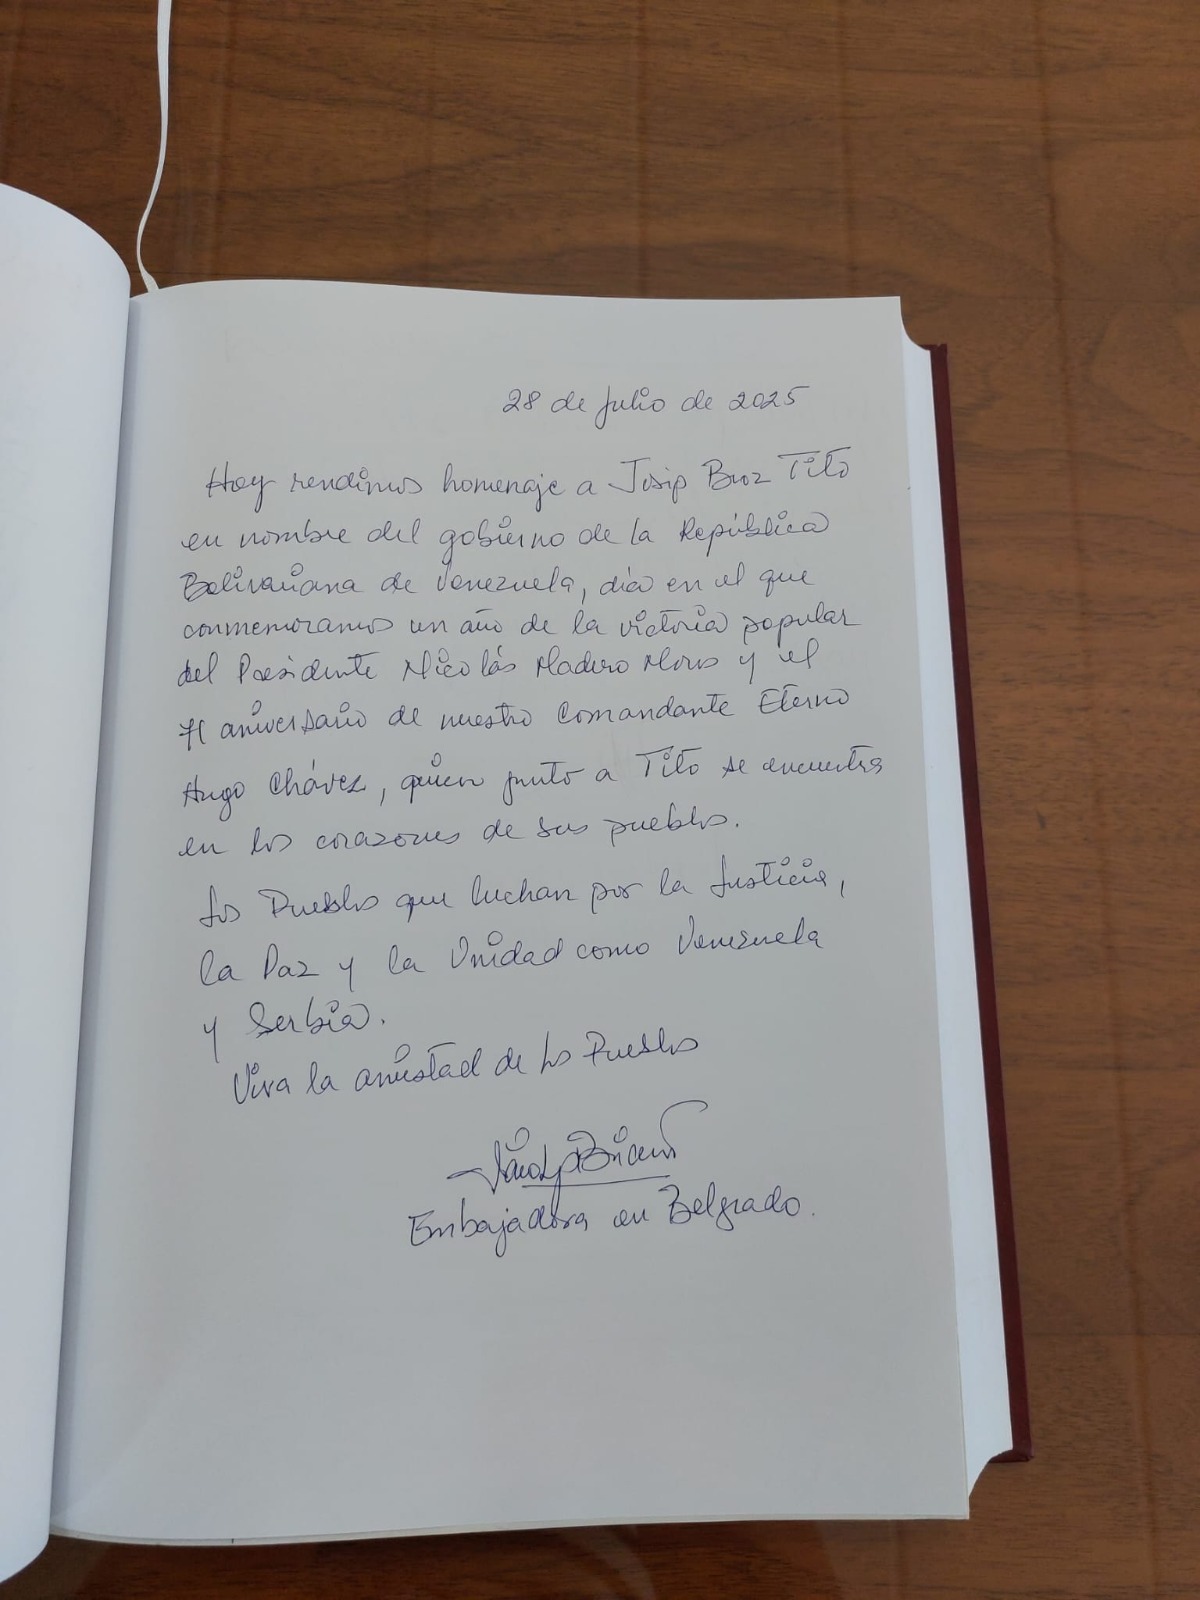 28 de julio de 2025
Hoy rendimos homenaje a Josip Broz Tito
en nombre del gobierno de la República
Bolivariana de Venezuela, día en el que
conmemoramos un año de la victoria popular
del Presidente Nicolás Maduro Moros y el
71 aniversario de nuestro Comandante Eterno
Hugo Chávez, quien junto a Tito se encuentra
en los corazones de sus pueblos.
Los Pueblos que luchan por la Justicia,
la Paz y la Unidad como Venezuela
y Serbia.
Viva la amistad de los Pueblos
Embajadora en Belgrado.